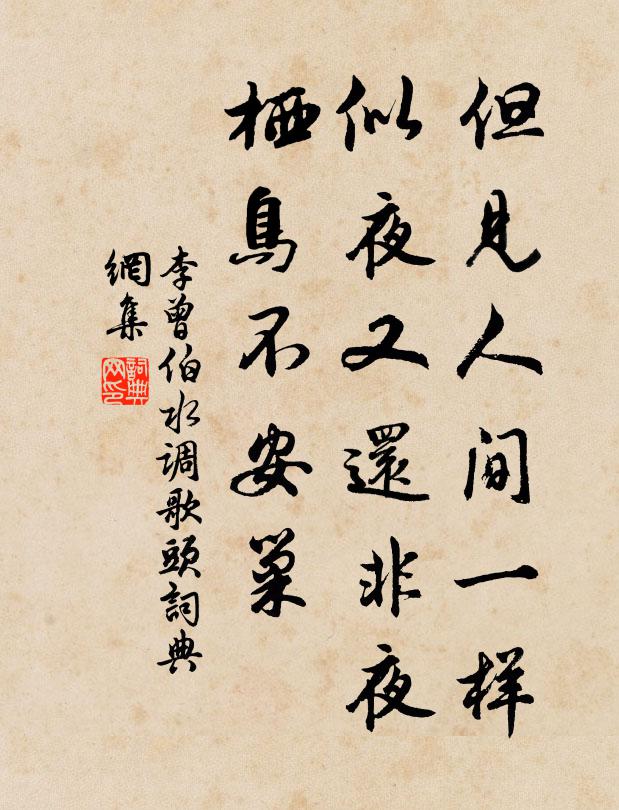 但見人间一样
似夜又還非夜
栖鳥不安巢
李曾伯水调歌頭詞典
網集
詞典
网印